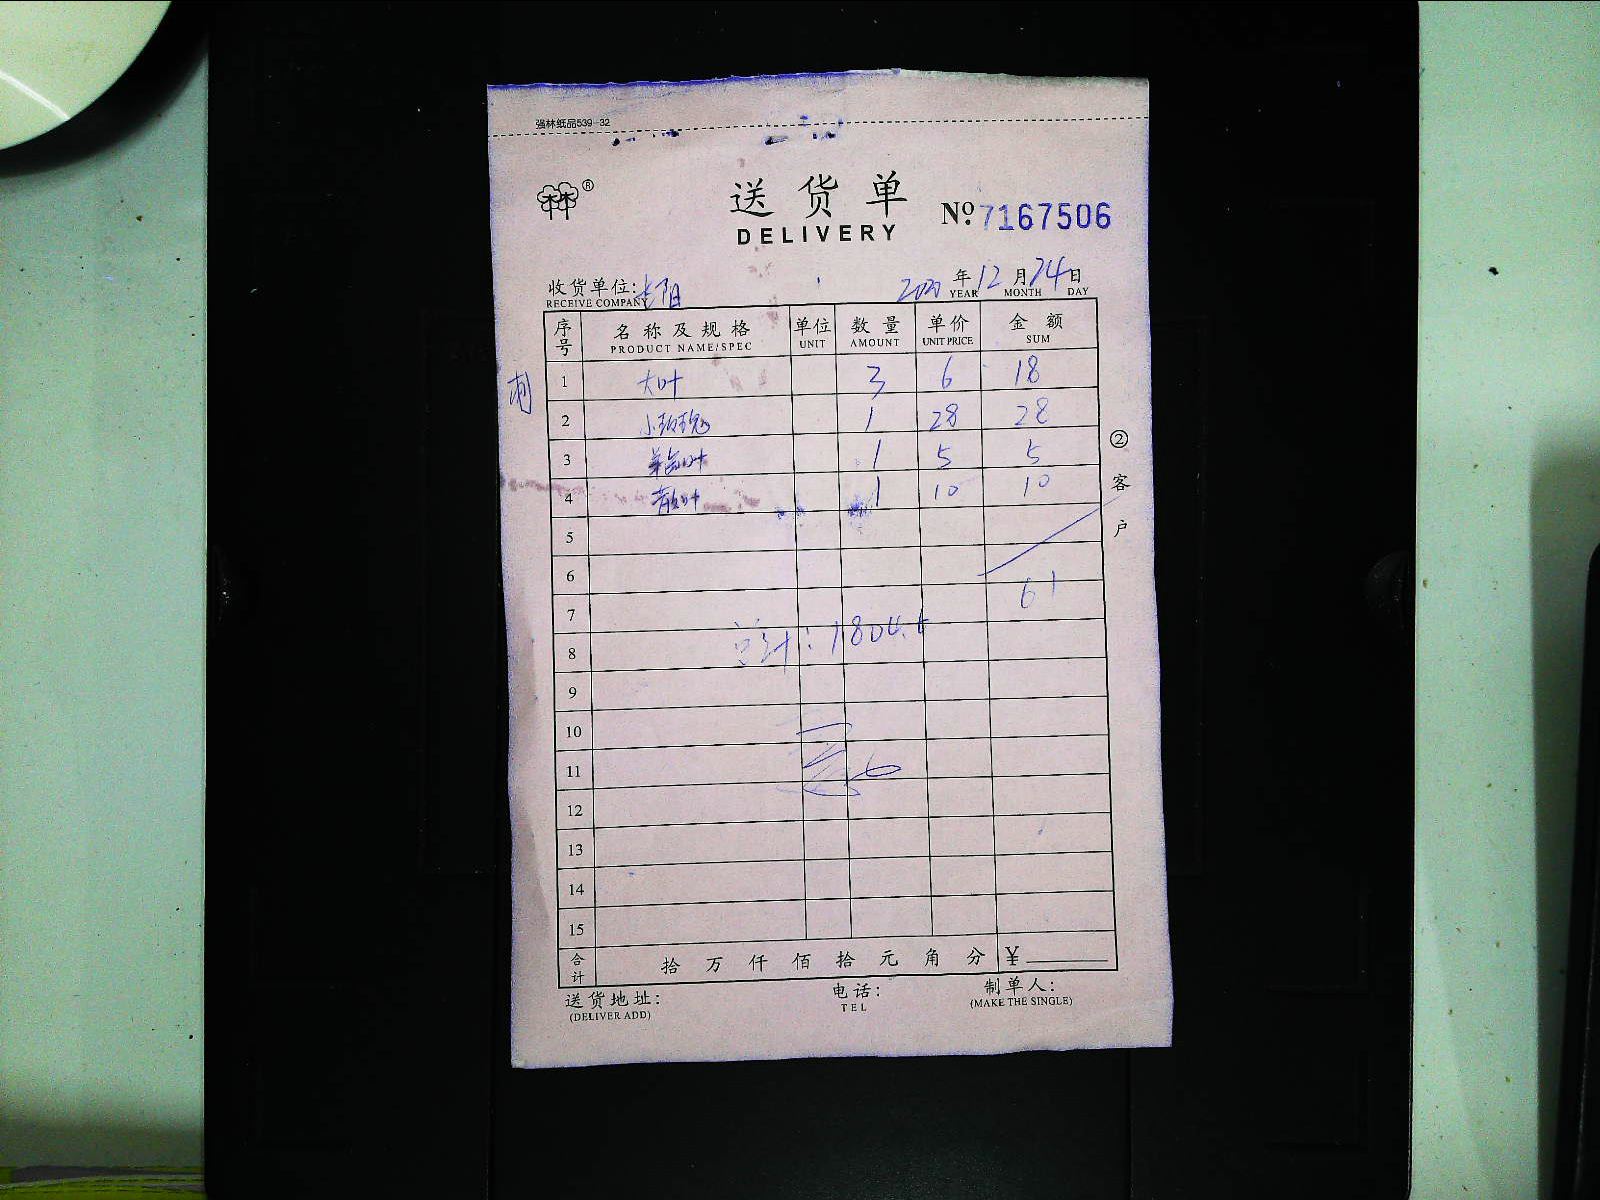 强林纸品539-32
®
送货单
№ 7167506
DELIVERY
收货单位: 2020年12月24日
RECEIVE COMPANY YEAR MONTH DAY
序号 名称及规格 单位 数量 单价 金额
PRODUCT NAME/SPEC UNIT AMOUNT UNIT PRICE SUM
1 大叶 3 6 18
2 小玫瑰 1 28 28
3 1 5 5
4 1 10 10
5
6
7 61
8 总计:1804.5
9
10
11
12
13
14
15
合计 拾 万 仟 佰 拾 元 角 分 ¥
送货地址: 电话: 制单人:
(DELIVER ADD) TEL (MAKE THE SINGLE)
② 客户